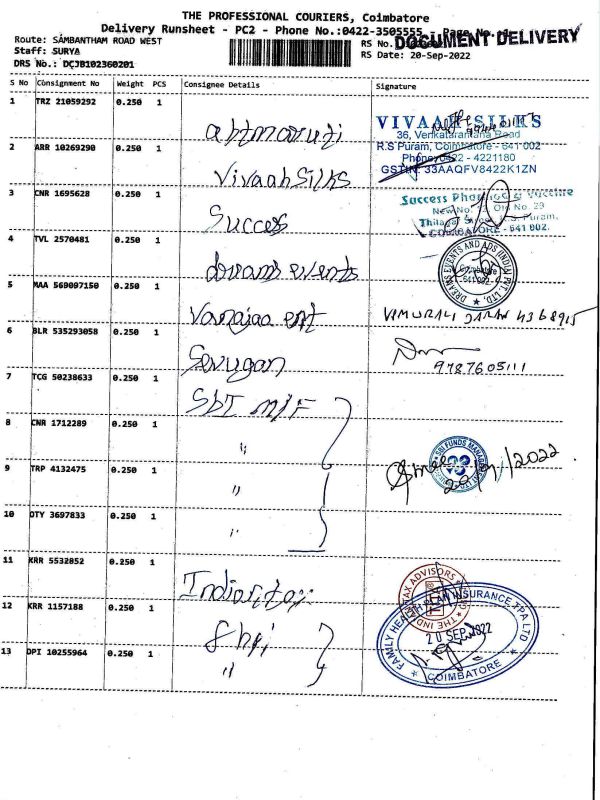 THE PROFESSIONAL COURIERS, Coimbatore
Delivery Runsheet - PC2 - Phone No.:0422-3505555
Route: SAMBANTHAM ROAD WEST
RS No.
DOCUMENT DELIVERY
Staff: SURYA
RS Date: 20-Sep-2022
DRS No.: DCJB102360201
S No Consignment No Weight PCS Consignee Details Signature
1 TRZ 21059292 0.250 1
VIVAAH SILKS
36, Venkataramana Road
2 ARR 10269290 0.250 1 Vivaah Silks
R.S Puram, Coimbatore - 641 002
Phone: 0422 - 4221180
GSTIN: 33AAQFV8422K1ZN
3 CNR 1695628 0.250 1 Success
Success Pharma & Vaccine
COIMBATORE - 641 002.
4 TVL 2570481 0.250 1 dreams events
DREAMS EVENTS AND ADS (INDIA) PVT. LTD.
Coimbatore
641 002
5 MAA 569097150 0.250 1 Vanajaa ent
6 BLR 535293058 0.250 1 Sevugan
9787605111
7 TCG 50238633 0.250 1 SbI M/F
8 CNR 1712289 0.250 1 "
SBI FUNDS MANAGEMENT
9 TRP 4132475 0.250 1 "
10 OTY 3697833 0.250 1 "
11 KRR 5532852 0.250 1
12 KRR 1157188 0.250 1
FAMILY HEALTH PLAN INSURANCE TPA LTD
20 SEP 2022
COIMBATORE
13 DPI 10255964 0.250 1 "